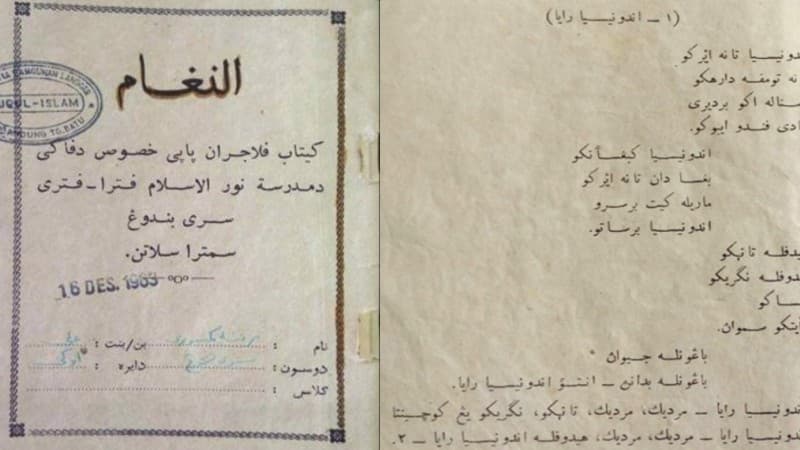 النغام
كيتاب فلاجران پاپي خصوص دفاكي
دمدرسة نور الاسلام فترا-فتري
سري بندوڠ
سمترا سلاتن.
16 DES. 1983
نام :
بن/بنت :
دوسون :
دايره :
كلاس :
BANGUNAN LANGGAR
UQUL-ISLAM
(١ – اندونيسيا رايا)
دونيسيا تانه ايركو
نه تومفه دارهكو
سناله اكو برديري
ادي فندو ايبوكو.
اندونيسيا كبڠسأنكو
بڠسا دان تانه ايركو
ماريله كيت برسرو
اندونيسيا برساتو.
يدفله تانهكو
دوفله نڬريكو
ساكو
يتكو سموان.
باڠونله جيوان
باڠونله بدانن – انتوق اندونيسيا رايا.
دونيسيا رايا – مرديك، مرديك، تانهكو، نڬريكو يڠ كوچينتا
دونيسيا رايا – مرديك، مرديك، هيدوفله اندونيسيا رايا – ٢.